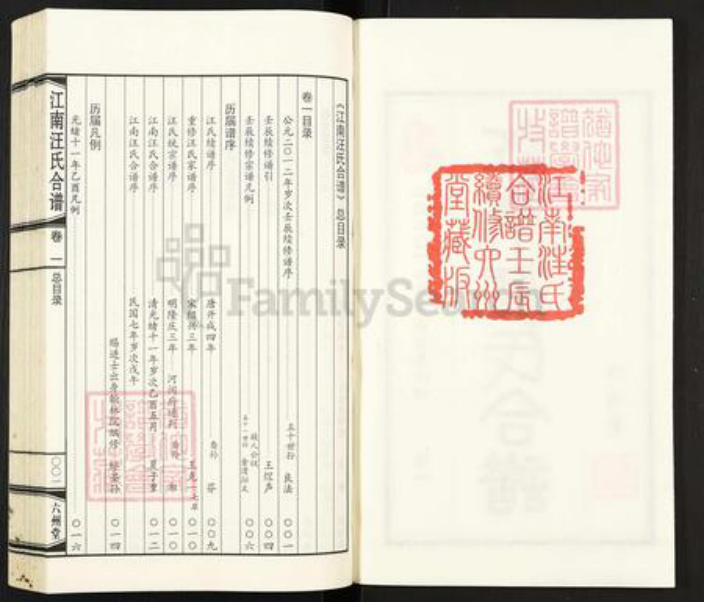 江南汪氏
合譜壬辰
續修六州
堂藏版
《江南汪氏合谱》总目录
卷一目录
公元二〇一二年岁次壬辰续修谱序 五十世孙 良法 〇〇一
壬辰续修谱引 王煜声 〇〇四
壬辰续修宗谱凡例 〇〇六
历届谱序
江氏续谱序 唐开成四年 裔孙 芬 〇〇九
重修汪氏家谱序 宋绍兴三年 〇一〇
江氏统宗谱序 明隆庆三年 河间府通判 〇一〇
江南汪氏合谱序 清光绪十一年岁次乙酉五月 夏子重 〇一二
江南汪氏合谱序 民国七年岁次戊午
赐进士出身翰林院 〇一四
历届凡例
光绪十一年乙酉凡例 〇一六
江南汪氏合谱 卷一 总目录 〇〇一 六州堂
FamilySearch